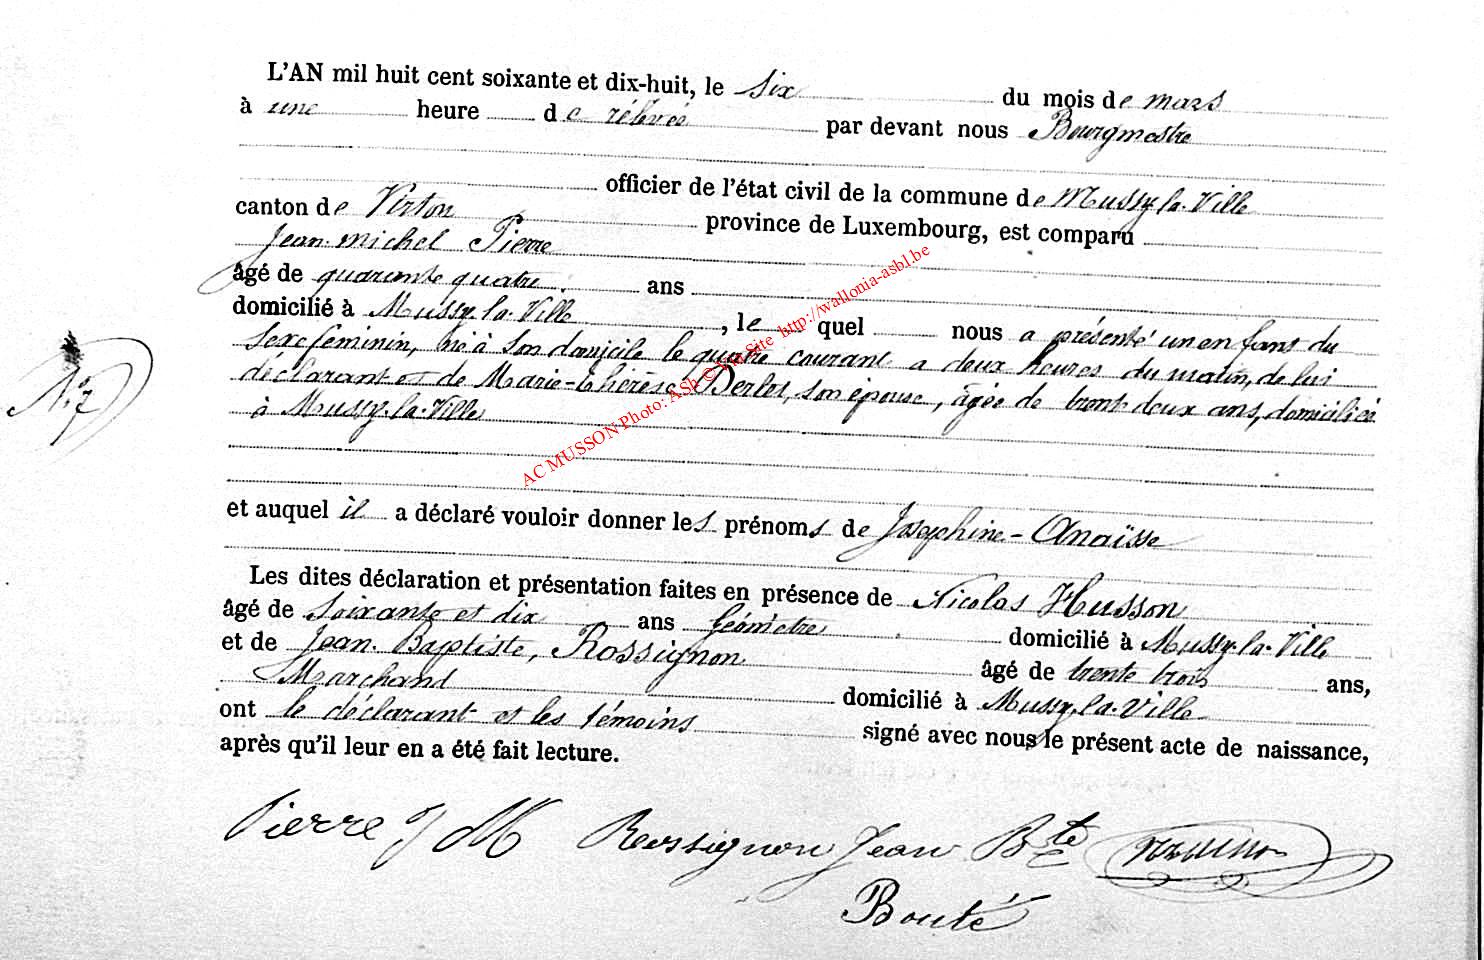 L'AN mil huit cent soixante et dix-huit, le Six du mois de mars
à une heure de rélévée par devant nous Bourgmestre
officier de l'état civil de la commune de Mussy-la-Ville
canton de Virton province de Luxembourg, est comparu
Jean-michel Pierre
âgé de quarante quatre ans
domicilié à Mussy-la-Ville, lequel nous a présenté un enfant du
Sexe féminin, né à Son domicile le quatre courant a deux heures du matin, de lui
déclarant et de Marie-thérèse Derlet, son épouse, âgée de trente deux ans, domiciliée
à Mussy-la-Ville
N°. 7
et auquel il a déclaré vouloir donner les prénoms de Joséphine-Anaïsse
Les dites déclaration et présentation faites en présence de Nicolas Husson
âgé de Soixante et dix ans Géomètre domicilié à Mussy-la-Ville
et de Jean-Baptiste, Rossignon âgé de trente trois ans,
Marchand domicilié à Mussy-la-Ville
ont le déclarant et les témoins signé avec nous le présent acte de naissance,
après qu'il leur en a été fait lecture.
Pierre J M Rossignon Jean Bte Husson
Bouté
AC MUSSON Photo: Asb © Via Site http://wallonia-asbl.be